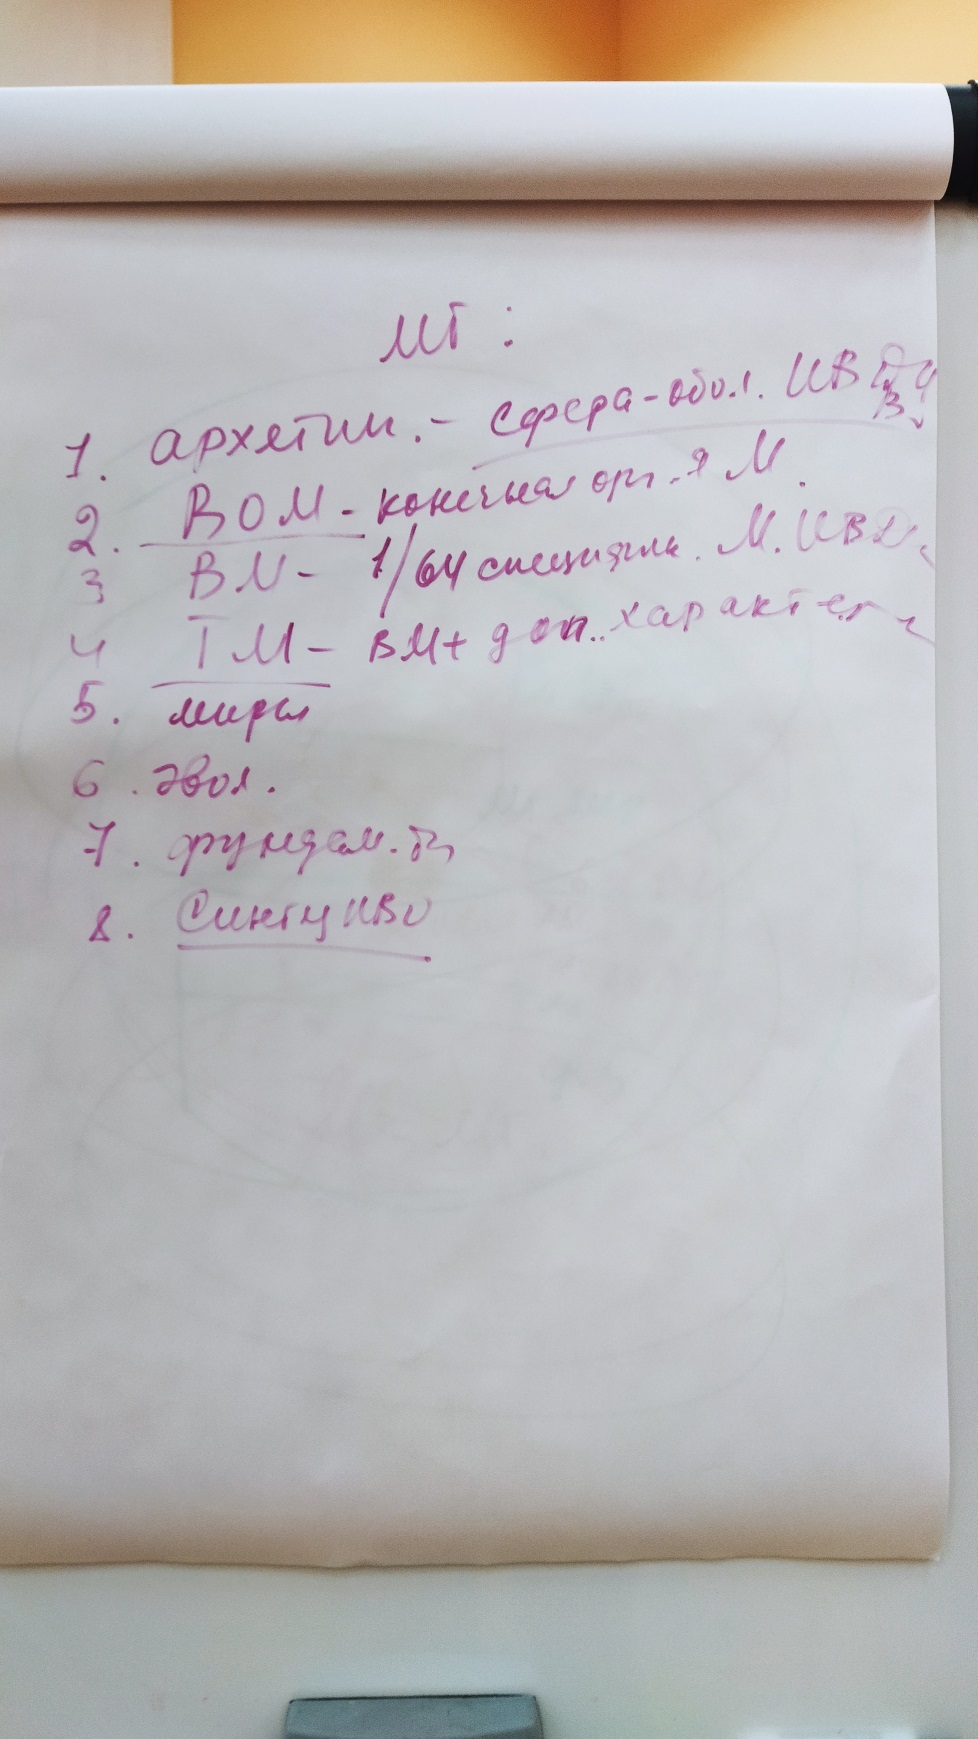 МТ:
1. архетип. - сфера-обол. ИВ
2. ВОМ - конечная орг.-я М.
3 ВМ - 1/64 специализ. М. ИВ
4 ТМ - ВМ + доп. характер
5. миры
6. эвол.
7. фундам.
8. Синтц ИВО